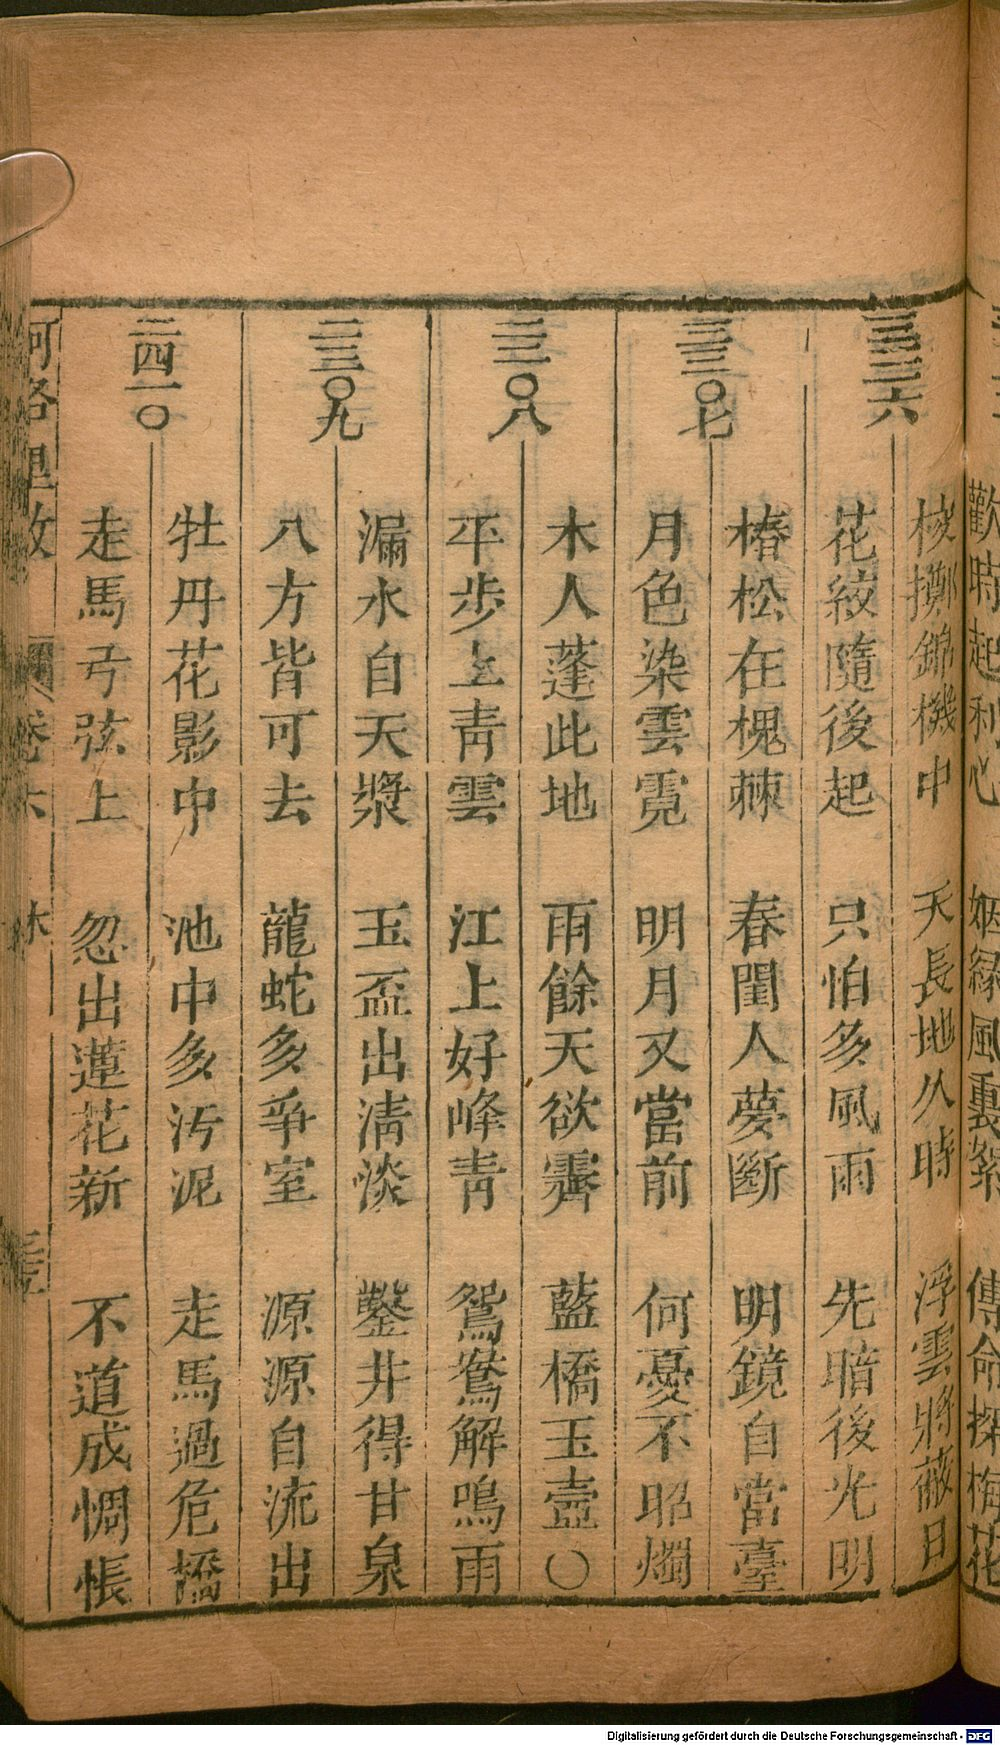 歡時起利心 姻緣風裏絮 傳命探梅花
三三三六
梭擲錦機中 天長地久時 浮雲將蔽日
花絞隨後起 只怕多風雨 先暗後光明
三三〇七
椿松在槐棘 春闈人夢斷 明鏡自當臺
月色染雲霓 明月又當前 何憂不昭燭
二三〇八
木人蓬此地 雨餘天欲霽 藍橋玉壼〇
平步上青雲 江上好峰青 鴛鴦解鳴雨
二三〇九
漏水自天漿 玉盃出清淡 鑿井得甘泉
八方皆可去 龍蛇多爭室 源源自流出
二四一〇
牡丹花影中 池中多汚泥 走馬過危橋
走馬弓弦上 忽出蓮花新 不道成惆悵
河洛里數 卷六
Digitalisierung gefördert durch die Deutsche Forschungsgemeinschaft - DFG